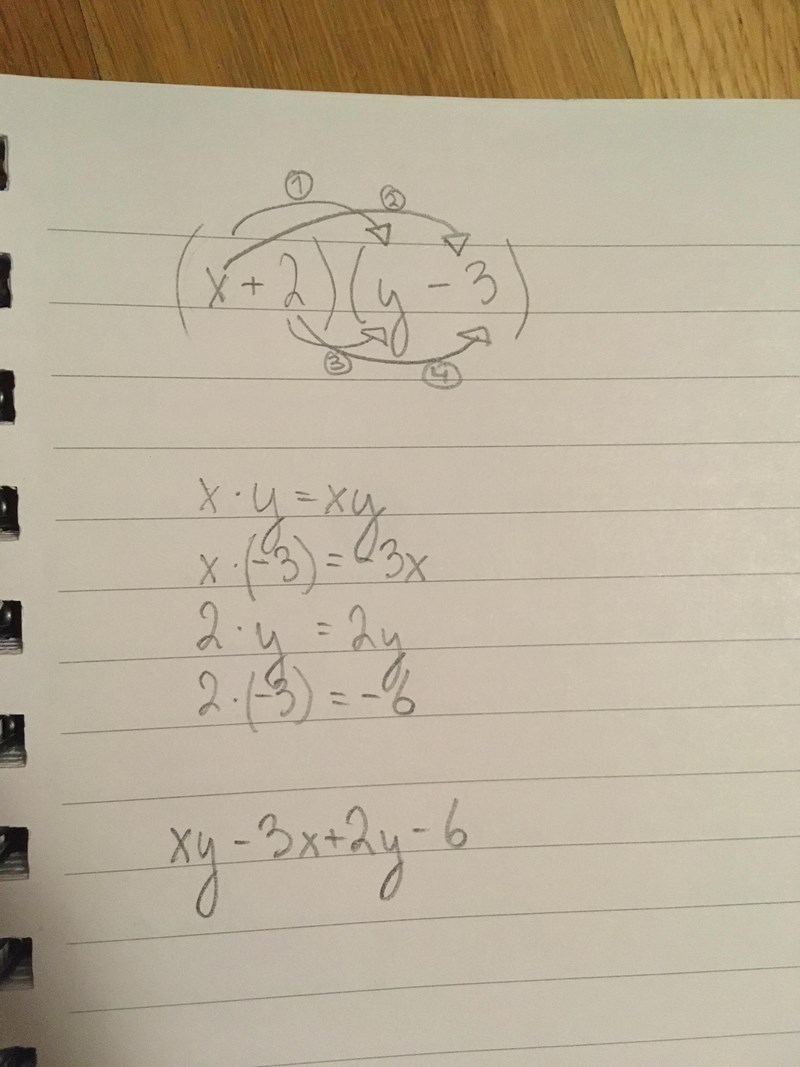 ① ②
(x + 2)(y - 3)
③ ④
x · y = xy
x · (-3) = -3x
2 · y = 2y
2 · (-3) = -6
xy - 3x + 2y - 6